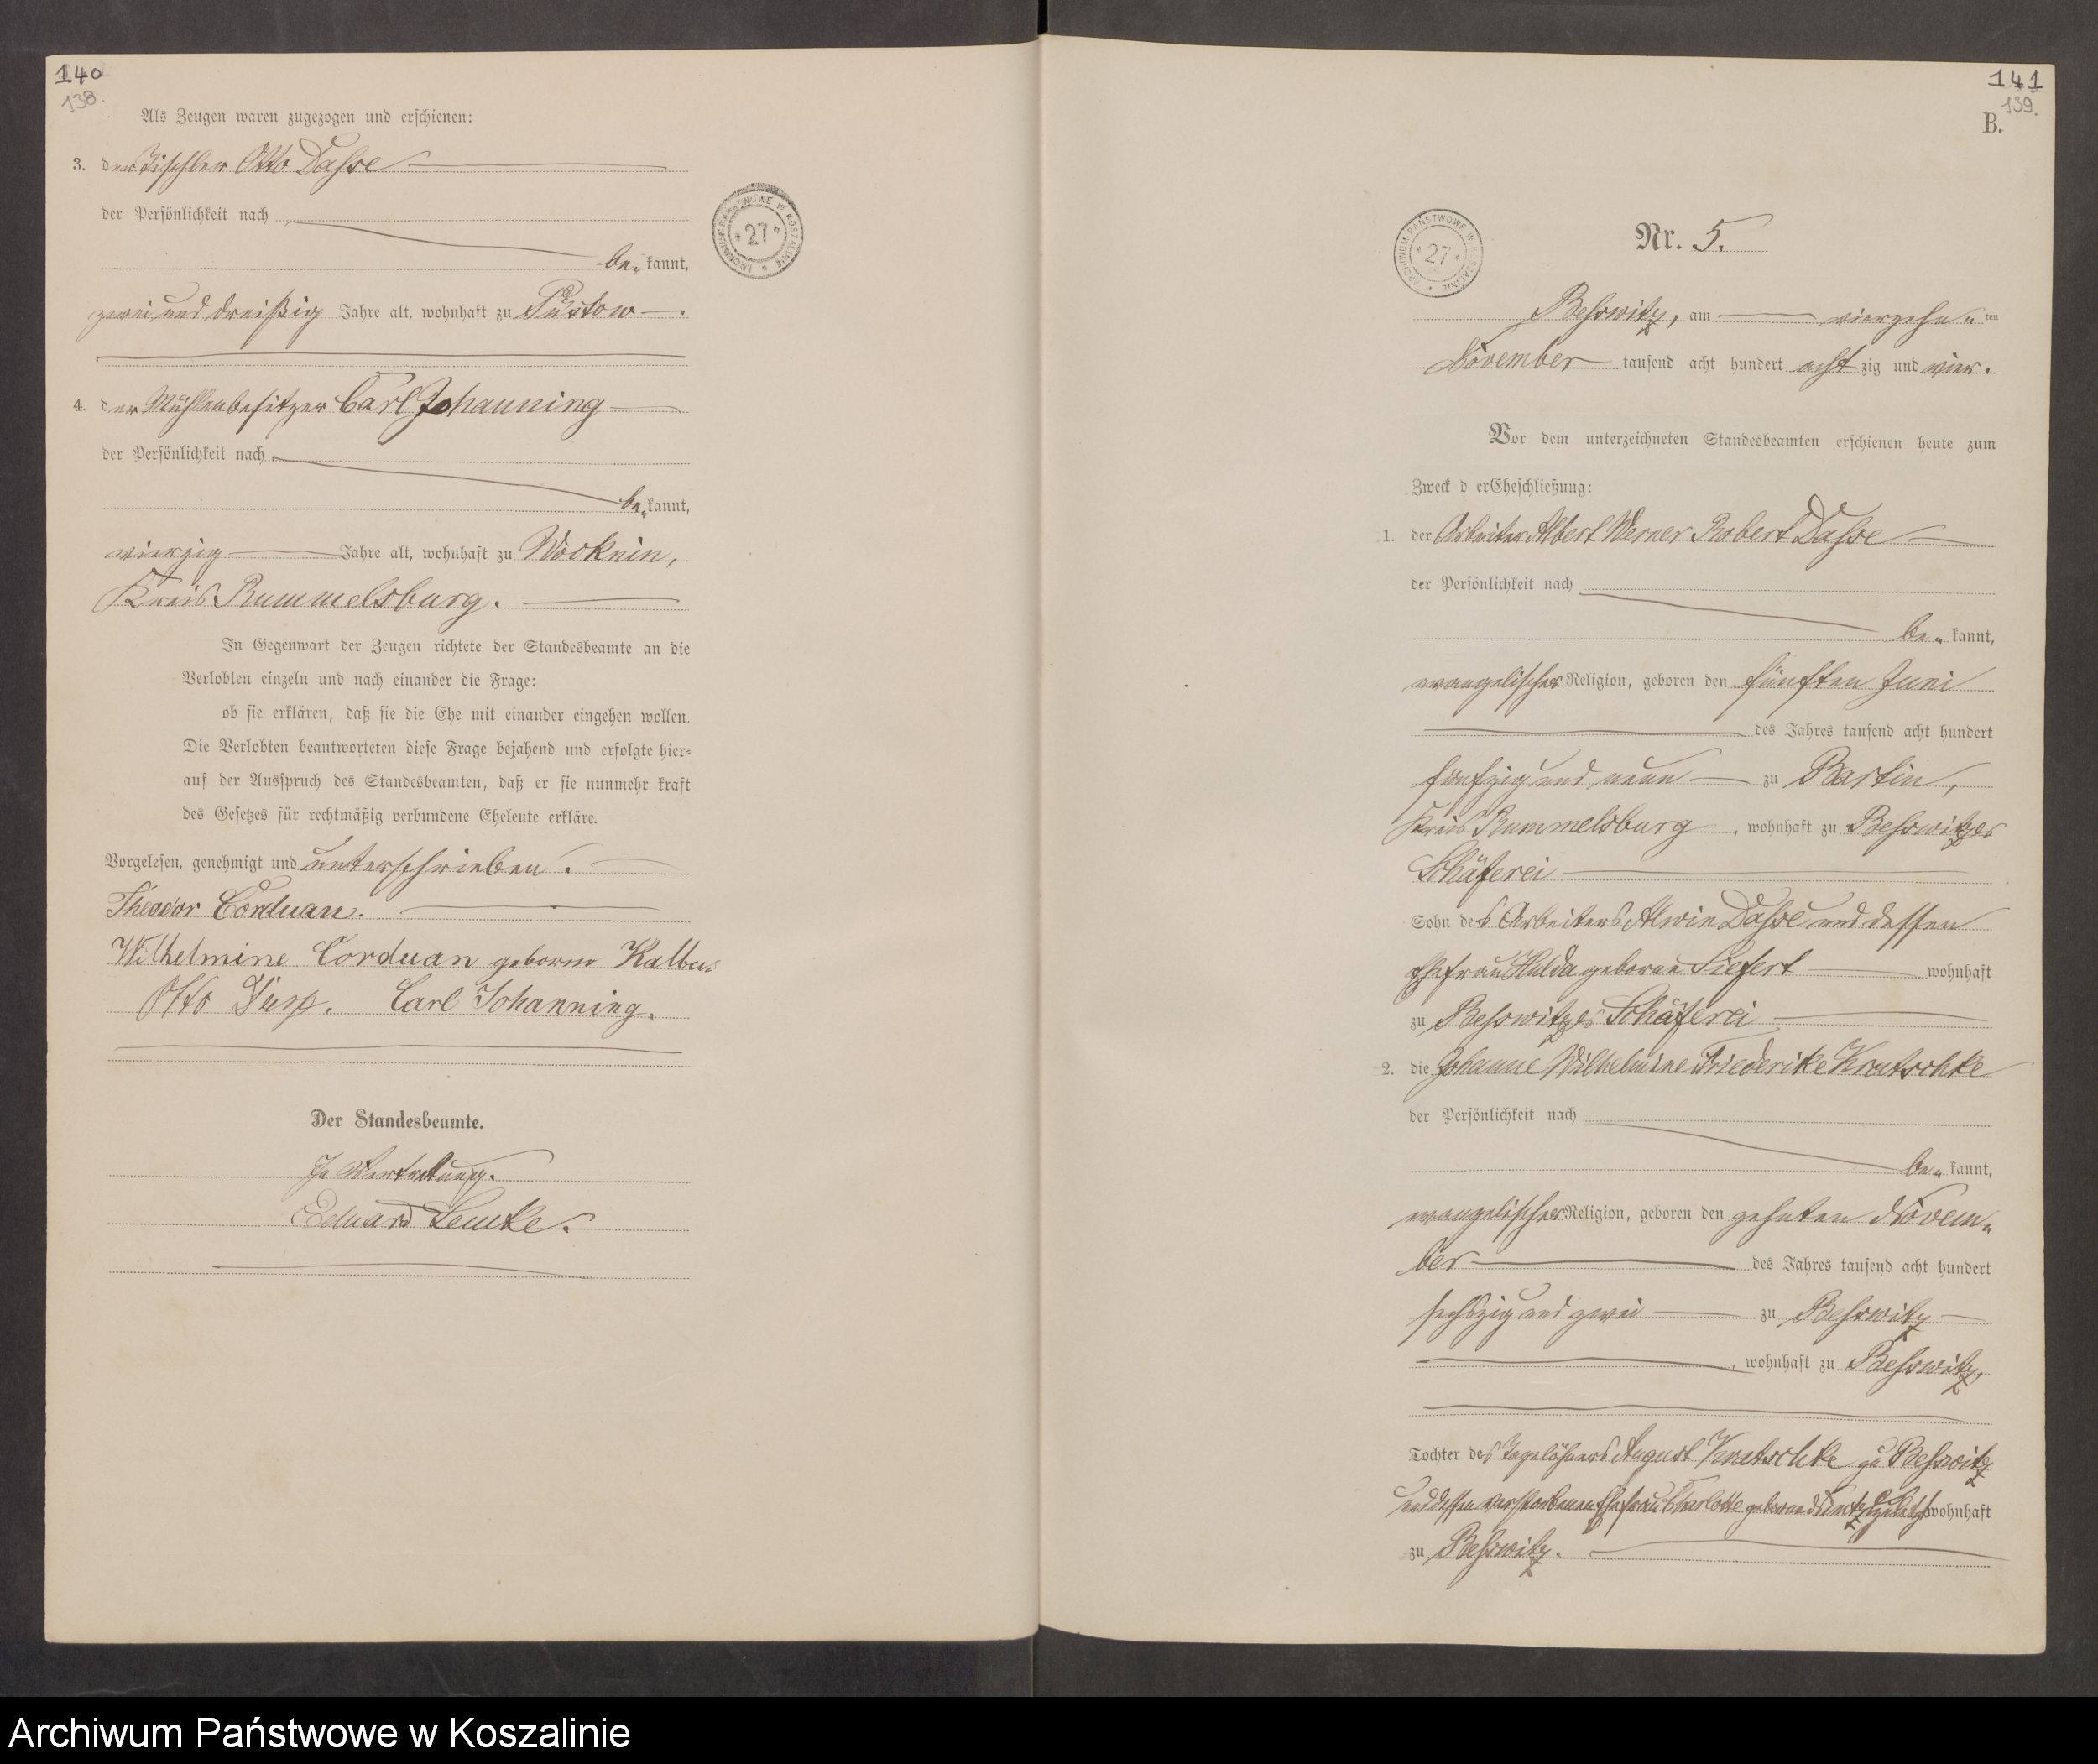 140
138.
Als Zeugen waren zugezogen und erschienen:
3. der Tischler Otto Dasse
der Persönlichkeit nach
be„kannt,
zwei und dreißig Jahre alt, wohnhaft zu Püstow
4. der Mühlenbesitzer Carl Johanning
der Persönlichkeit nach
be„kannt,
vierzig Jahre alt, wohnhaft zu Wocknin,
Kreis Rummelsburg.
In Gegenwart der Zeugen richtete der Standesbeamte an die
Verlobten einzeln und nach einander die Frage:
ob sie erklären, daß sie die Ehe mit einander eingehen wollen.
Die Verlobten beantworteten diese Frage bejahend und erfolgte hier-
auf der Ausspruch des Standesbeamten, daß er sie nunmehr kraft
des Gesetzes für rechtmäßig verbundene Eheleute erkläre.
Vorgelesen, genehmigt und unterschrieben.
Theodor Corduan.
Wilhelmine Corduan geborne
Otto Carl Johanning.
Der Standesbeamte.
In Vertretung.
Eduard Lemke.
ARCHIWUM PAŃSTWOWE W KOSZALINIE
* 27 *
141
139.
B.
ARCHIWUM PAŃSTWOWE W KOSZALINIE
* 27 *
Nr. 5.
Beßwitz, am vierzehn„ten
November tausend acht hundert achtzig und vier.
Vor dem unterzeichneten Standesbeamten erschienen heute zum
Zweck d er Eheschließung:
1. der Arbeiter Albert Werner Robert Dasse
der Persönlichkeit nach
be„kannt,
evangelischer Religion, geboren den fünften Juni
des Jahres tausend acht hundert
fünfzig und neun zu Bartin,
Kreis Rummelsburg, wohnhaft zu Beßwitzer
Schäferei
Sohn des Arbeiters Alwin Dasse und dessen
Ehefrau Hulda geborne Siefert wohnhaft
zu Beßwitzer Schäferei
2. die Johanne Wilhelmine Friederike Kratschke
der Persönlichkeit nach
be„kannt,
evangelischer Religion, geboren den zehnten Novem„
ber des Jahres tausend acht hundert
sechszig und zwei zu Beßwitz
, wohnhaft zu Beßwitz,
Tochter des Tagelöhners August Kratschke zu Beßwitz
und dessen verstorbenen Ehefrau Charlotte geborne zuletzt wohnhaft
zu Beßwitz.
Archiwum Państwowe w Koszalinie